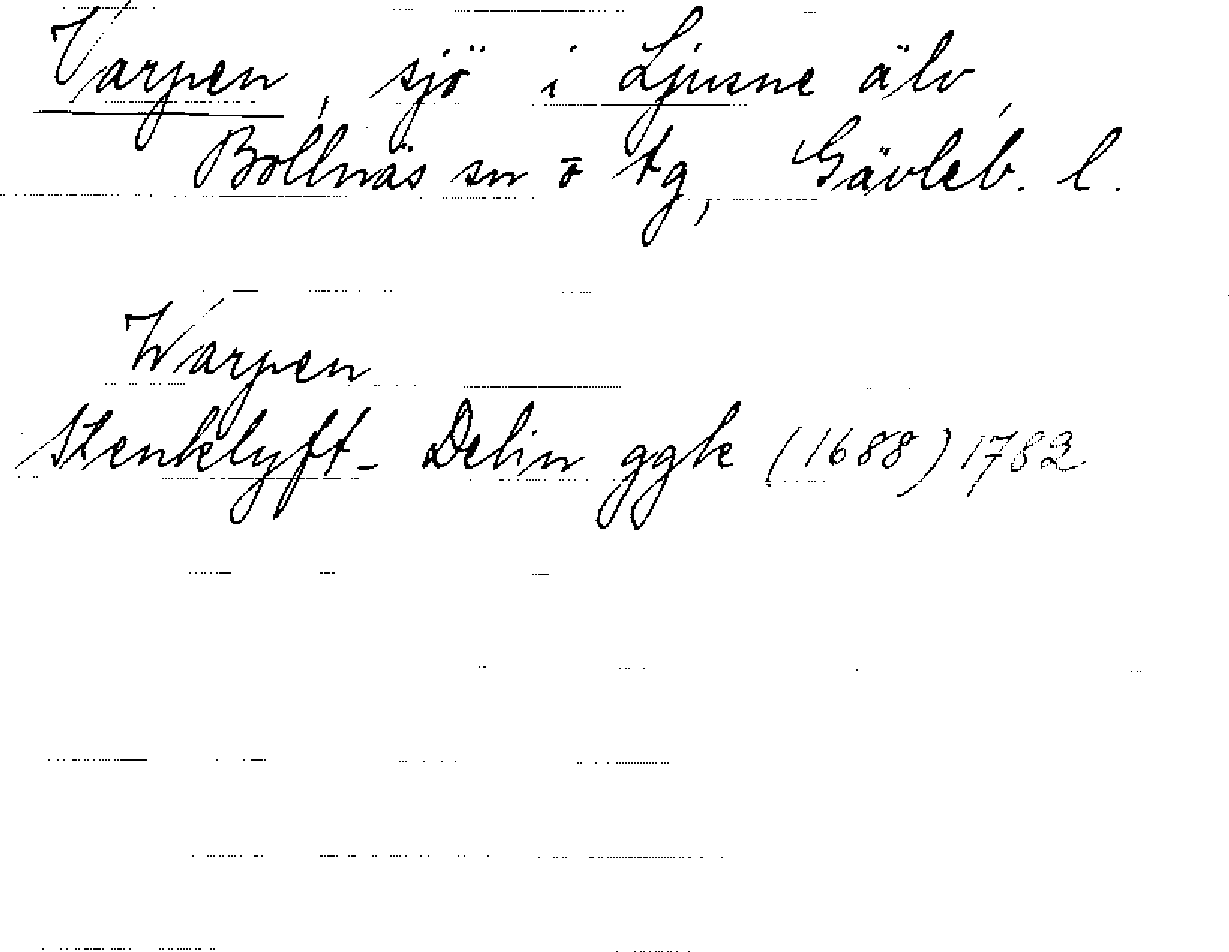 Varpen, sjö i Ljusne älv,
Bollnäs sn o tg, Gävleb. l.
Warpen
Stenklyft- Delin ggk (1688) 1782